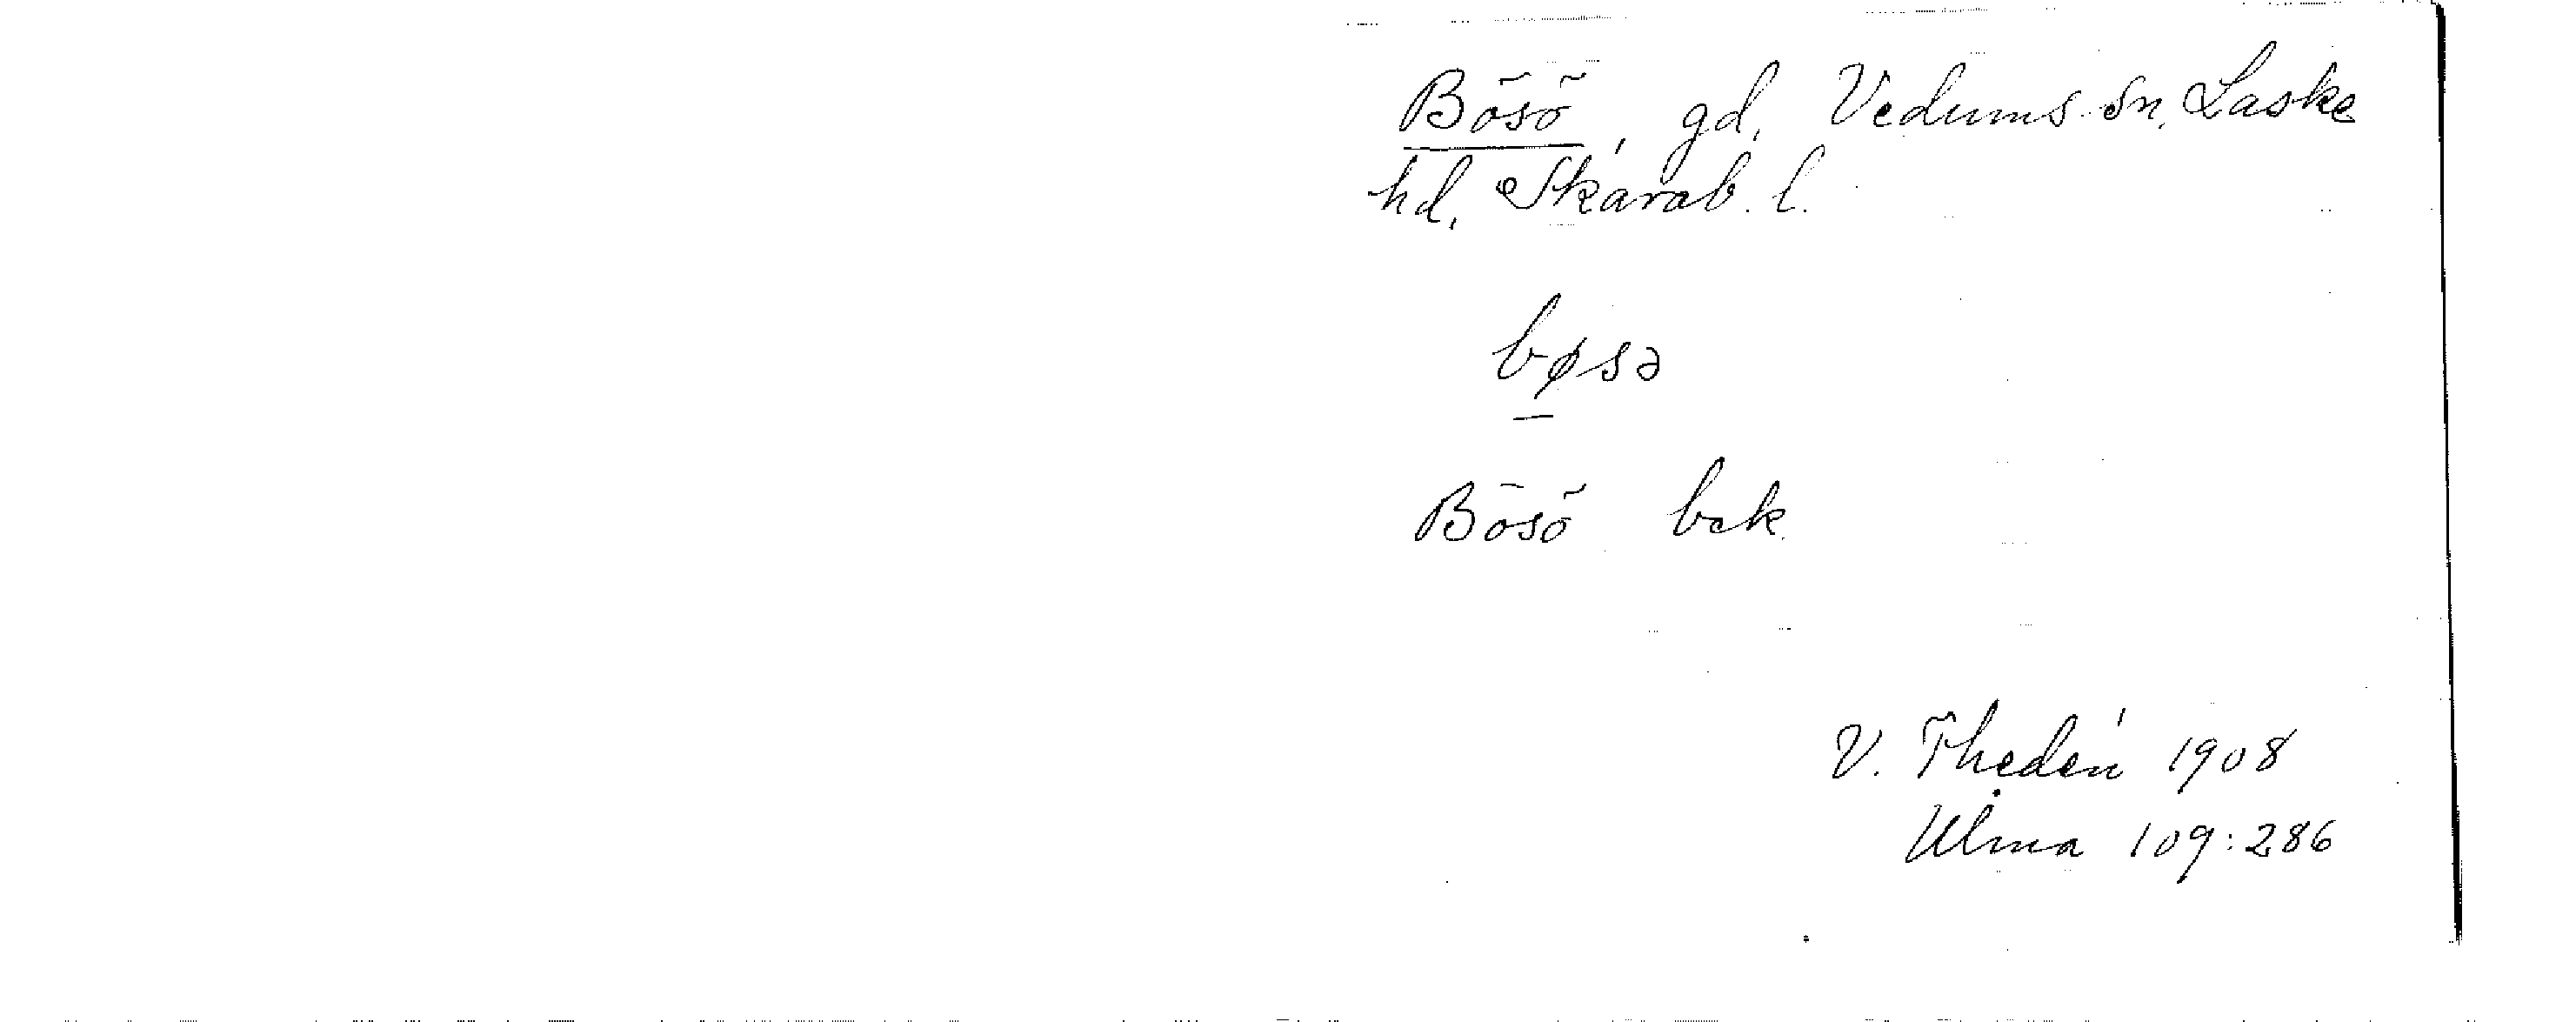 Bösö, gd, Vedums sn, Laske
hd, Skarab. l.
bøsə
Bösö bek.
V. Thedén 1908
Ulma 109:286